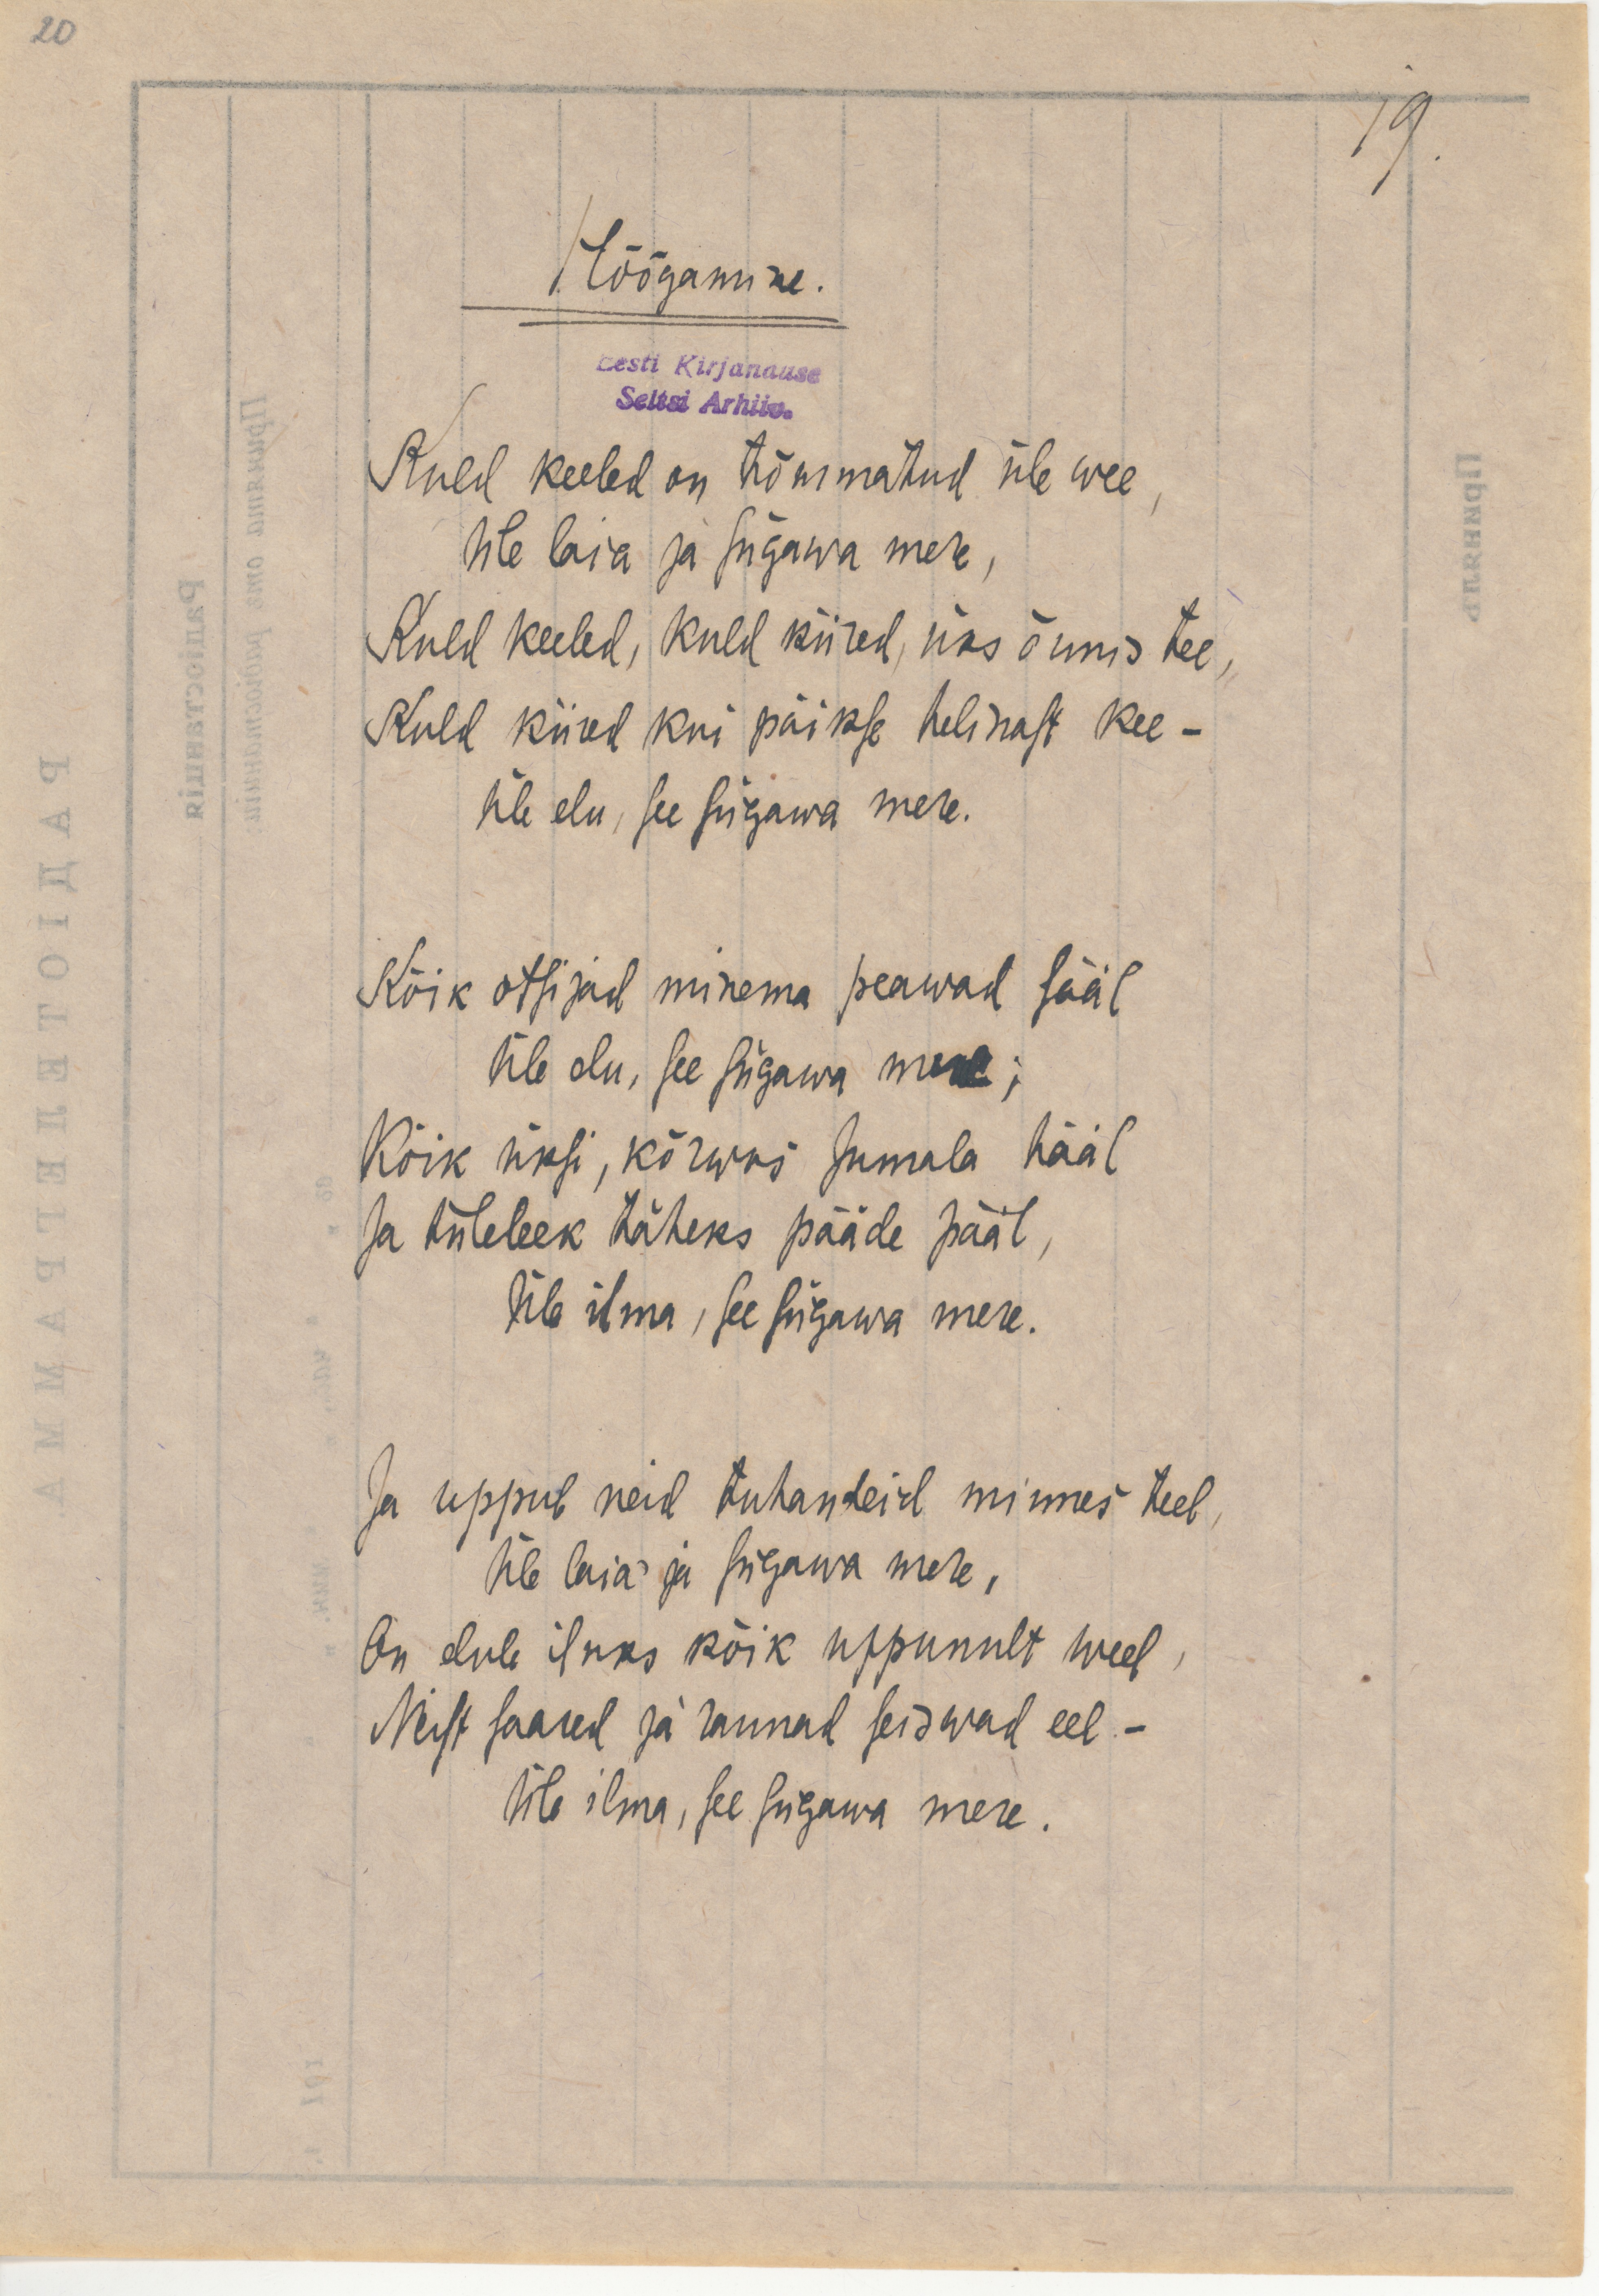 20
19.
Hõõgamine.
Eesti Kirjanduse
Seltsi Arhiiv.
Kuld keeled on tõmmatud üle wee,
Üle laia ja sügawa mere,
Kuld keeled, kuld kiired, üks õnnis tee,
Kuld kiired kui päikse helinast kee –
Üle elu, see sügawa mere.
Kõik otsijad minema peawad sääl
Üle elu, see sügawa mere;
Kõik üksi, kõrwus Jumala hääl
Ja tuleleek täheks pääde pääl,
Üle ilma, see sügawa mere.
Ja uppub neid tuhandeid minnes teel,
Üle laia ja sügawa mere,
On elule iluks kõik uppunult weel,
Neist saared ja rannad seiswad eel –
Üle ilma, see sügawa mere.
РАДІОТЕЛЕГРАММА
Радіостанція
Приняла
191